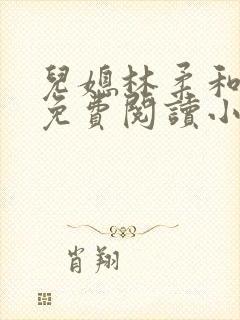 兒媳林柔和
免費閱讀小
肖翔